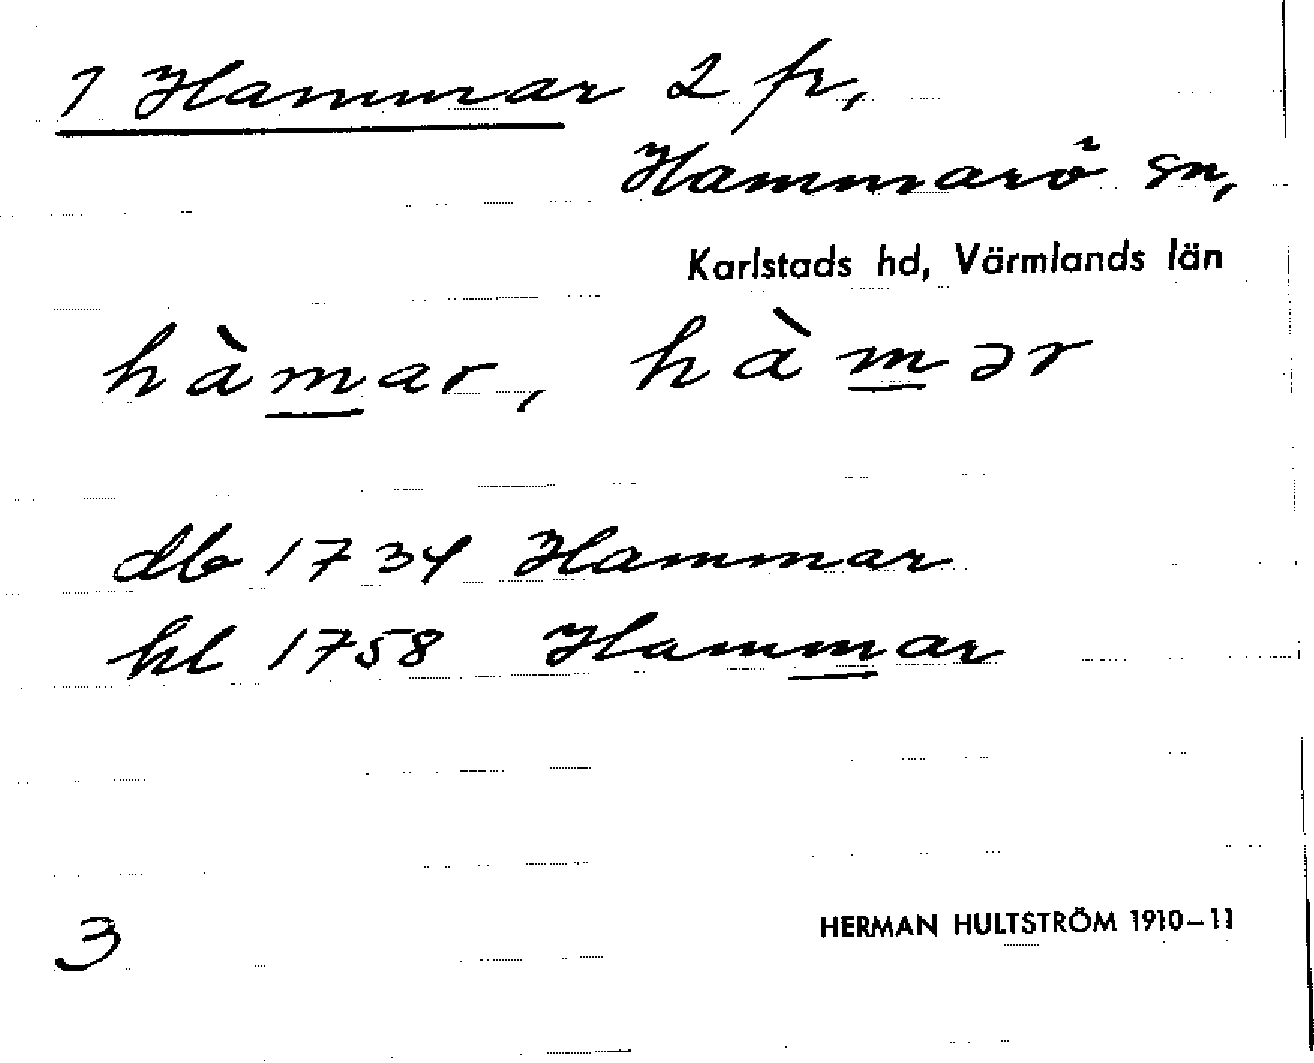 1 Hammar 2 fr,
Hammarö sn,
Karlstads hd, Värmlands län
hàmar, hàmər
db 1734 Hammar
hl 1758 Hammar
3
HERMAN HULTSTRÖM 1910–11